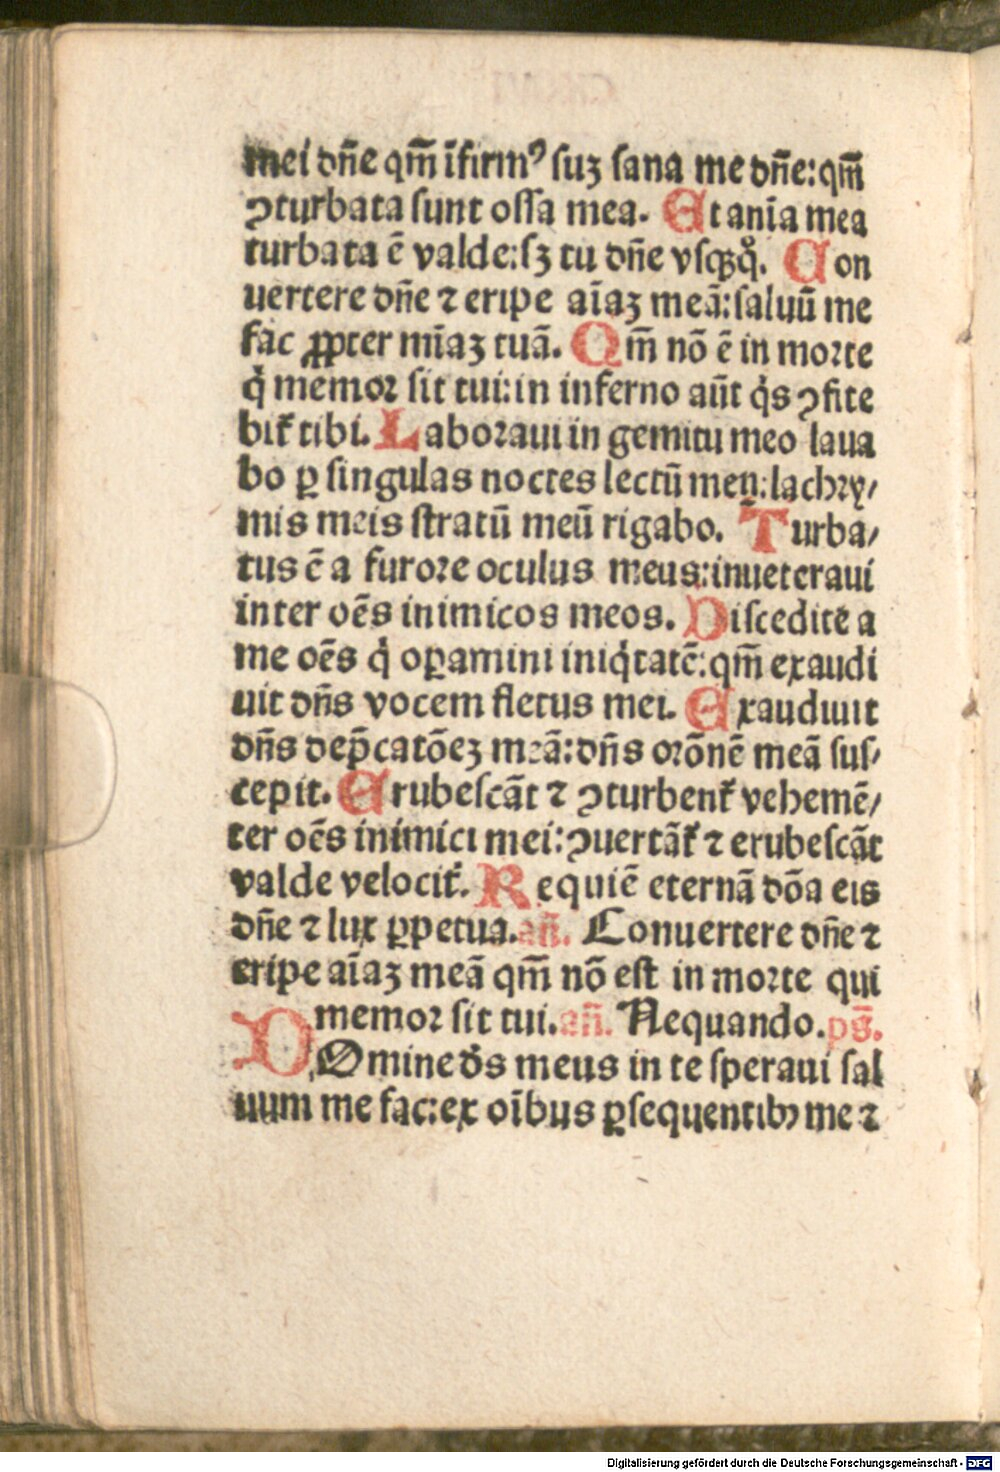 mei dn̄e qm̄ īfirmꝰ suꝫ sana me dn̄e: qm̄
ꝯturbata sunt ossa mea. Et anīa mea
turbata ē valde: sꝫ tu dn̄e vsqꝫq̊. Con
uertere dn̄e ⁊ eripe aīaꝫ meā: saluū me
fac ꝓpter mīaꝫ tuā. Qm̄ nō ē in morte
q̇ memor sit tui: in inferno aūt q̇s ꝯfite
bit᷑ tibi. Laboraui in gemitu meo laua
bo ꝑ singulas noctes lectū meū: lachry⸗
mis meis stratū meū rigabo. Turba⸗
tus ē a furore oculus meus: inueteraui
inter oēs inimicos meos. Discedite a
me oēs q̇ oꝑamini iniq̇tatē: qm̄ exaudi
uit dn̄s vocem fletus mei. Exaudiuit
dn̄s dep̄catōeꝫ meā: dn̄s orōnē meā sus⸗
cepit. Erubescāt ⁊ ꝯturbent᷑ vehemē⸗
ter oēs inimici mei: ꝯuertāt᷑ ⁊ erubescāt
valde velocit᷑. Requiē eternā dōa eis
dn̄e ⁊ lux ꝑpetua. an̄. Conuertere dn̄e ⁊
eripe aīaꝫ meā qm̄ nō est in morte qui
memor sit tui. an̄. Nequando. ps̄.
DOmine ds̄ meus in te speraui sal
uum me fac: ex oībus ꝑsequentibꝫ me ⁊
Digitalisierung gefördert durch die Deutsche Forschungsgemeinschaft - DFG